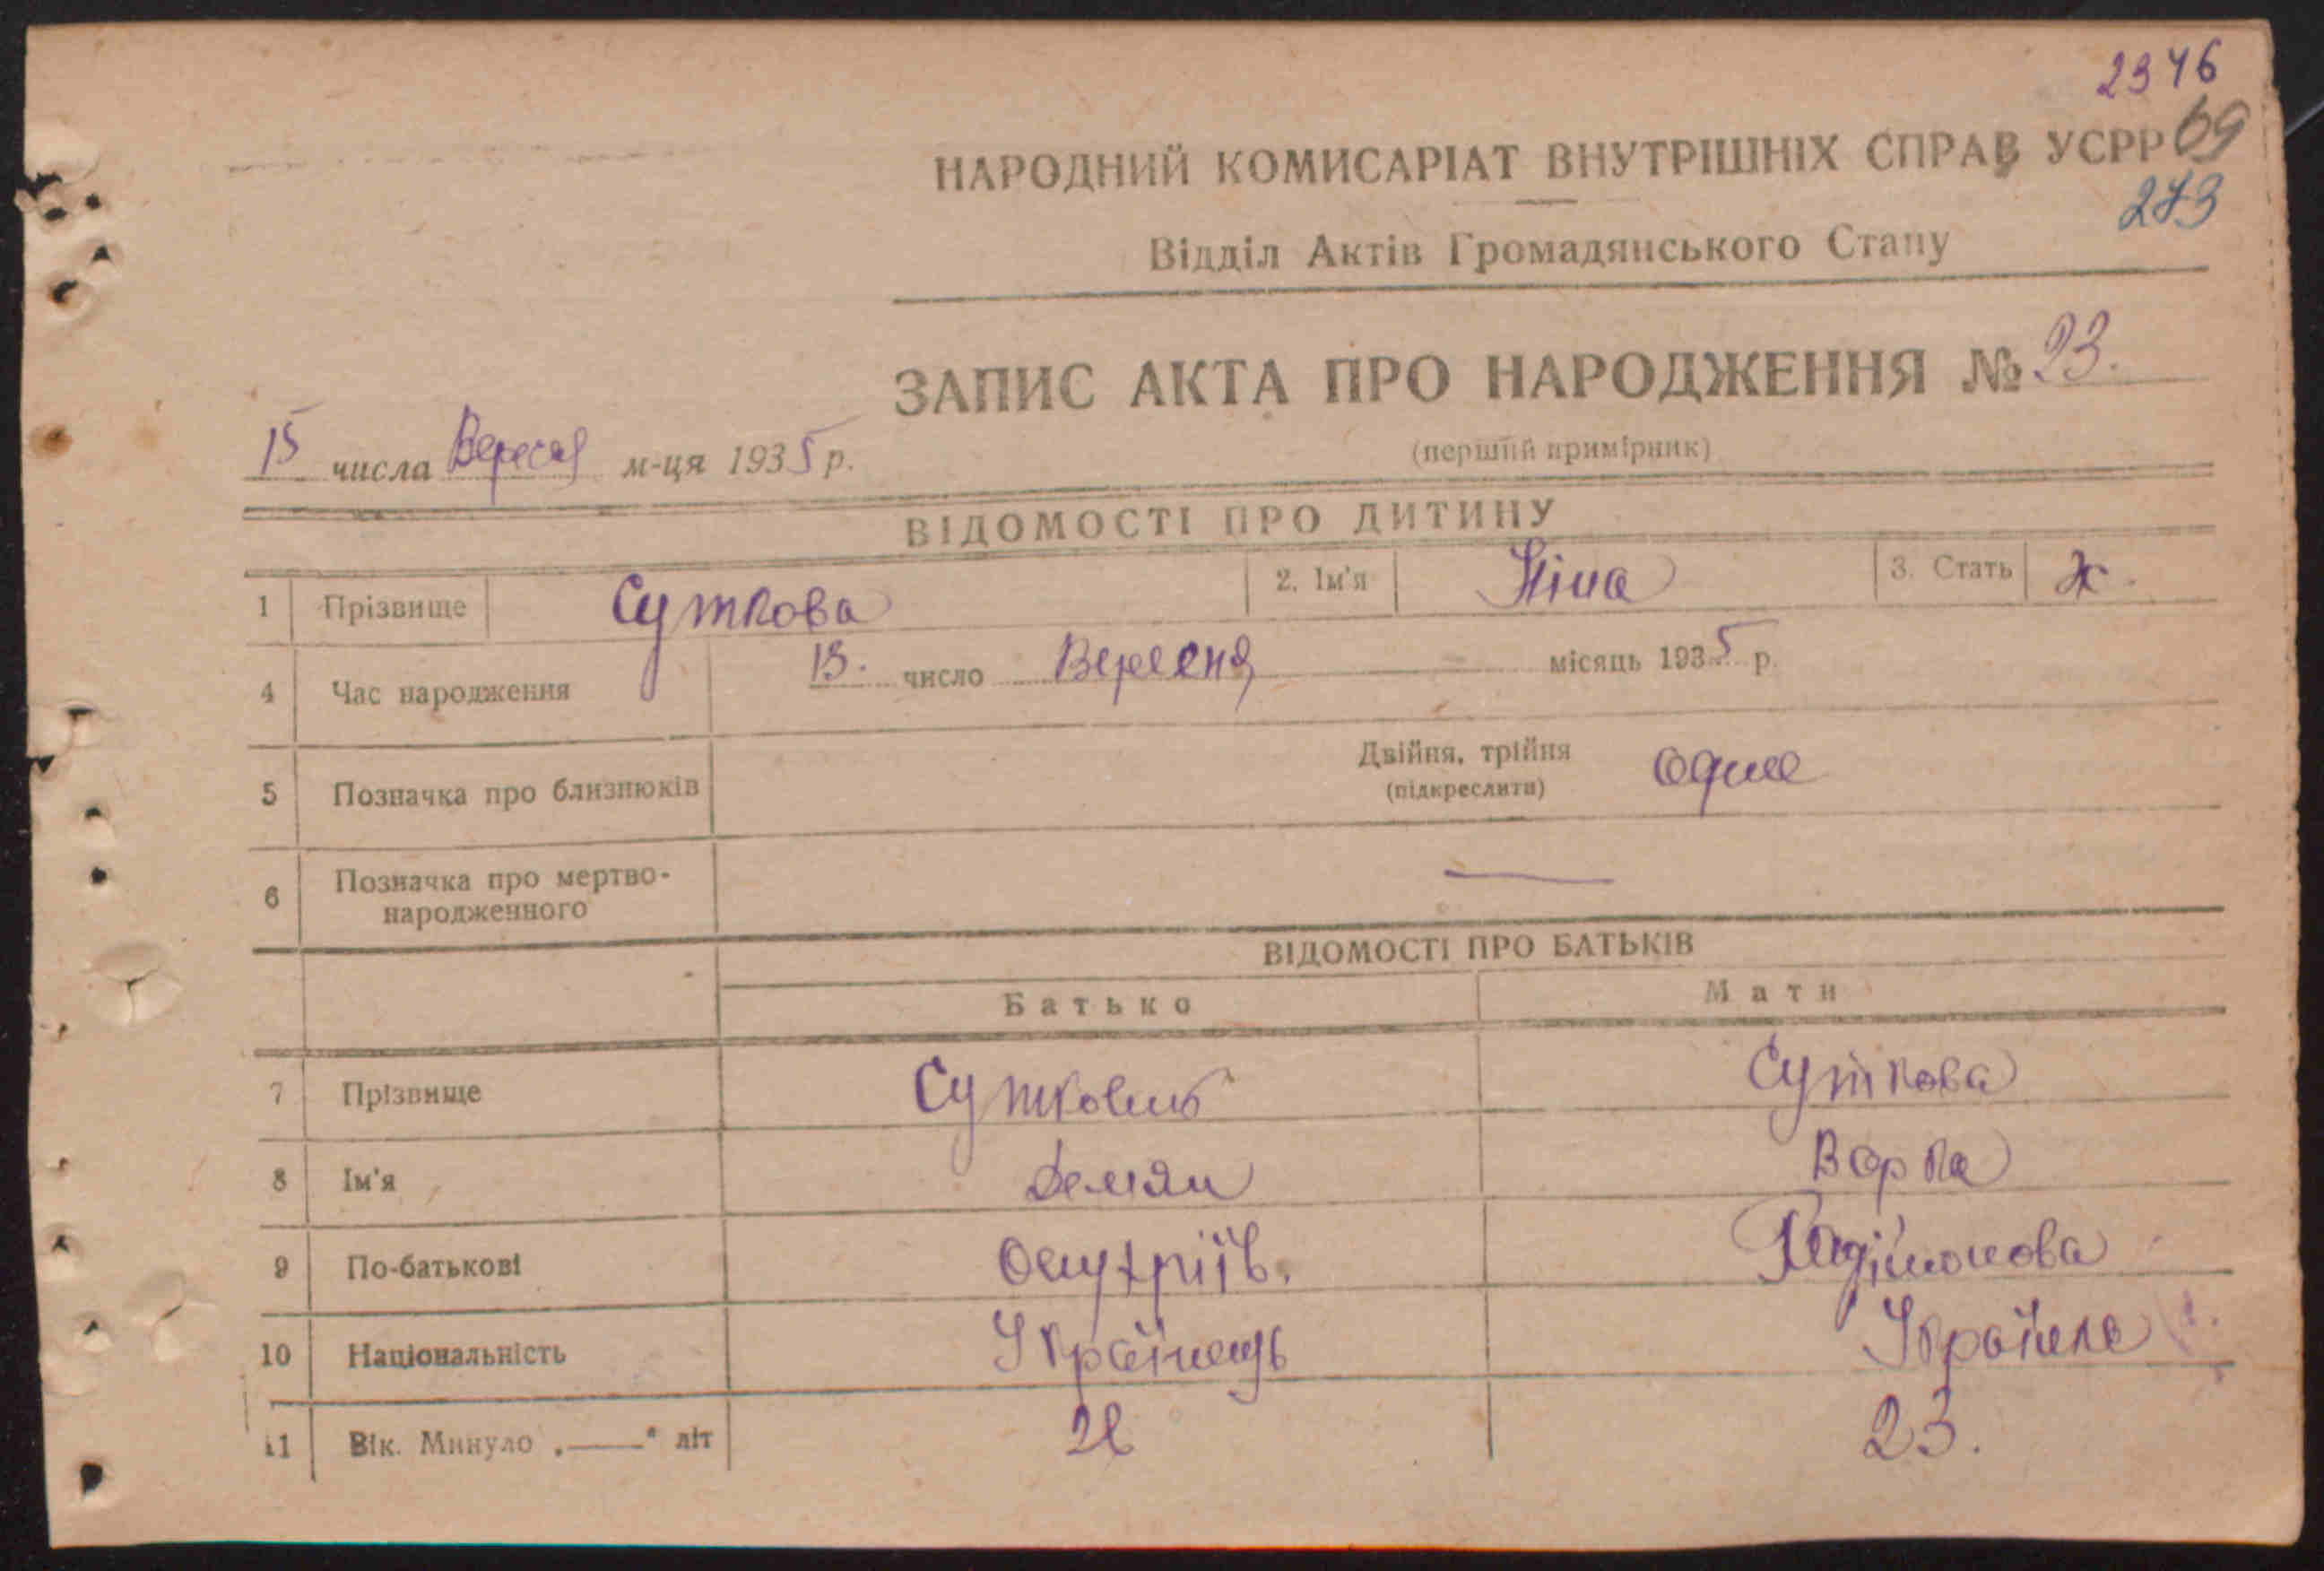 2346
НАРОДНИЙ КОМИСАРІАТ ВНУТРІШНІХ СПРАВ УСРР 69
273
Відділ Актів Громадянського Стану
ЗАПИС АКТА ПРО НАРОДЖЕННЯ № 23.
(перший примірник)
15 числа м-ця 1935 р.
ВІДОМОСТІ ПРО ДИТИНУ
1 Прізвище Суткова 2. Ім'я Ніна 3. Стать ж.
4 Час народження 13. число Вересня місяць 1935 р.
5 Позначка про близнюків Двійня, трійня
(підкреслити) одне
6 Позначка про мертво-
народженного —
ВІДОМОСТІ ПРО БАТЬКІВ
Батько Мати
7 Прізвище Суткова
8 Ім'я Демян Варка
9 По-батькові
10 Національність Українець
11 Вік. Минуло „—" літ 23.